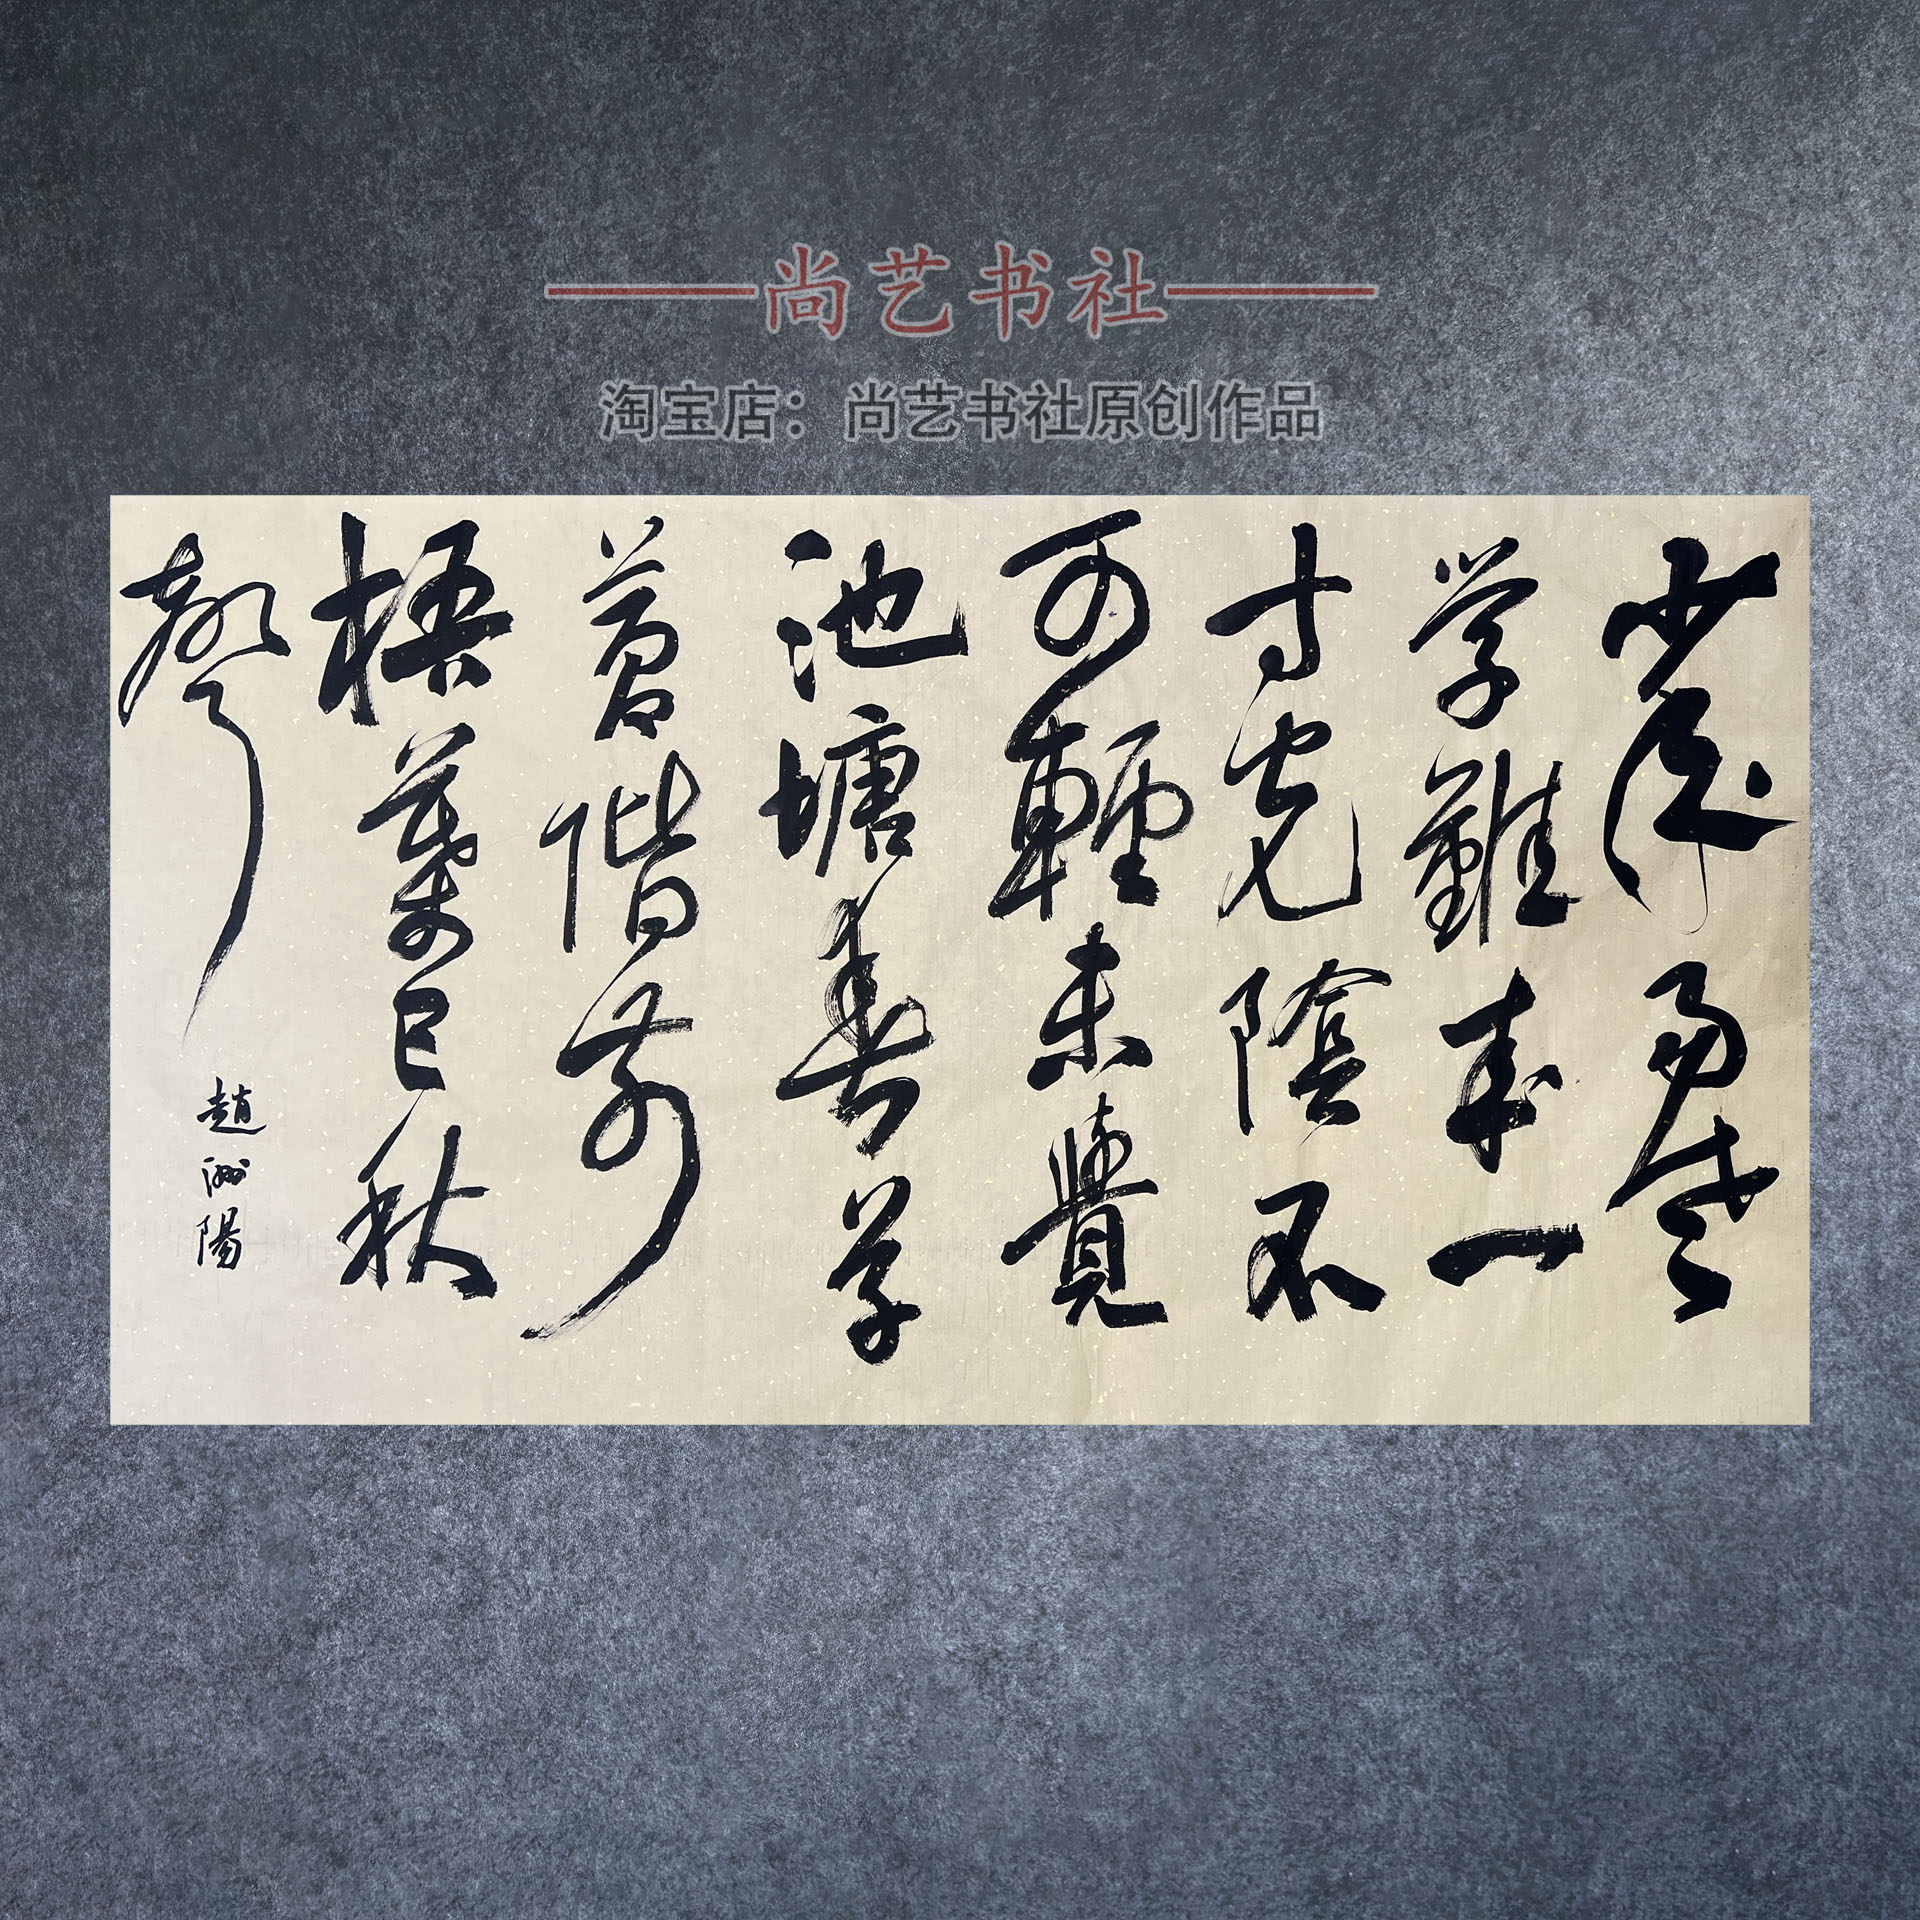 尚艺书社
淘宝店：尚艺书社原创作品
少年易老
学難成一
寸光陰不
可輕未覺
池塘春草
夢階前
梧葉已秋
聲
趙洲陽